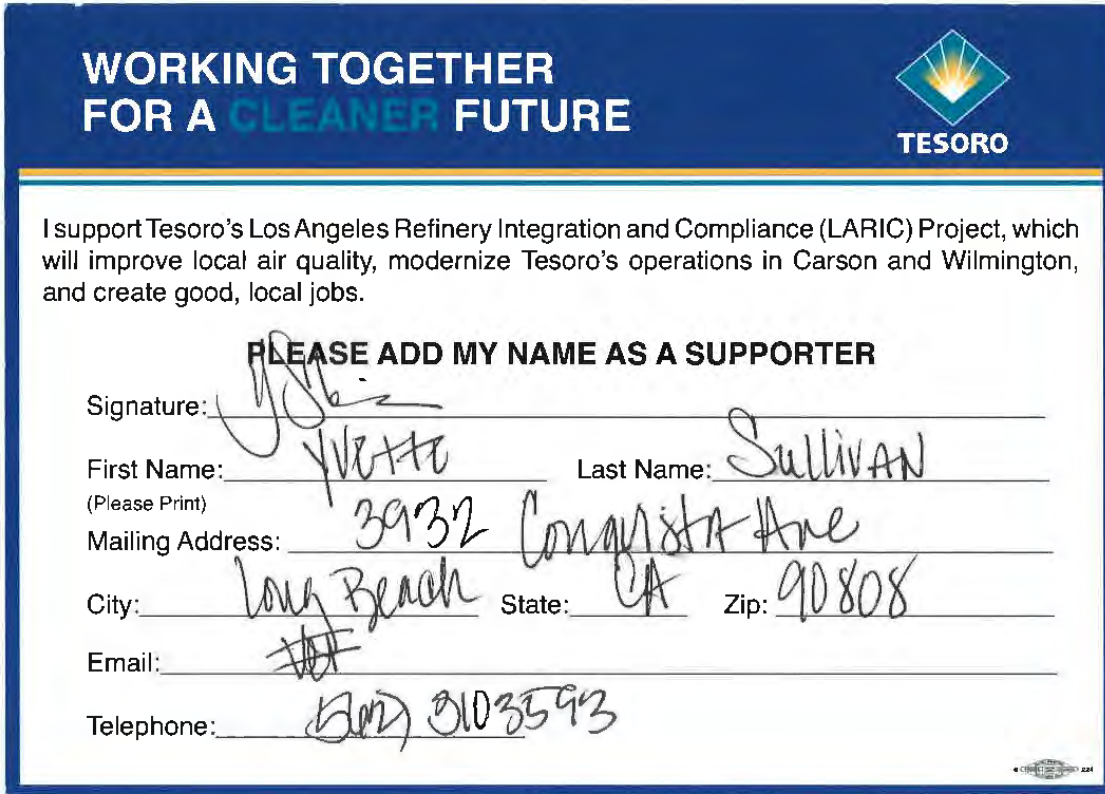 WORKING TOGETHER
FOR A CLEANER FUTURE
TESORO
I support Tesoro's Los Angeles Refinery Integration and Compliance (LARIC) Project, which
will improve local air quality, modernize Tesoro's operations in Carson and Wilmington,
and create good, local jobs.
PLEASE ADD MY NAME AS A SUPPORTER
Signature:
First Name: Yvette Last Name: Sullivan
(Please Print)
Mailing Address: 3932 Conquista Ave
City: Long Beach State: CA Zip: 90808
Email:
Telephone: 562) 3103593